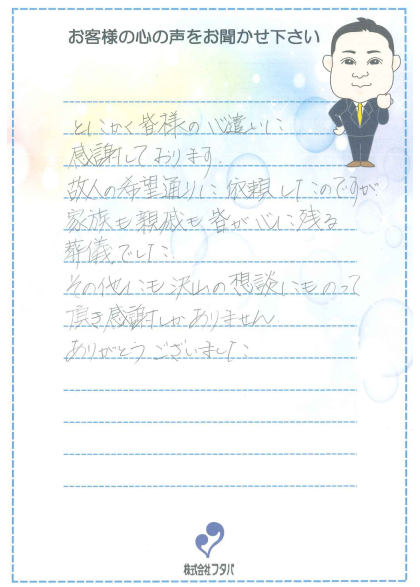 お客様の心の声をお聞かせ下さい
とにかく皆様の心遣いに
感謝しております.
故人の希望通りに依頼したのですが
家族も親戚も皆が心に残る
葬儀でした
その他にも沢山の想談にものって
頂き感謝しかありません
ありがとうございました
株式会社フタバ